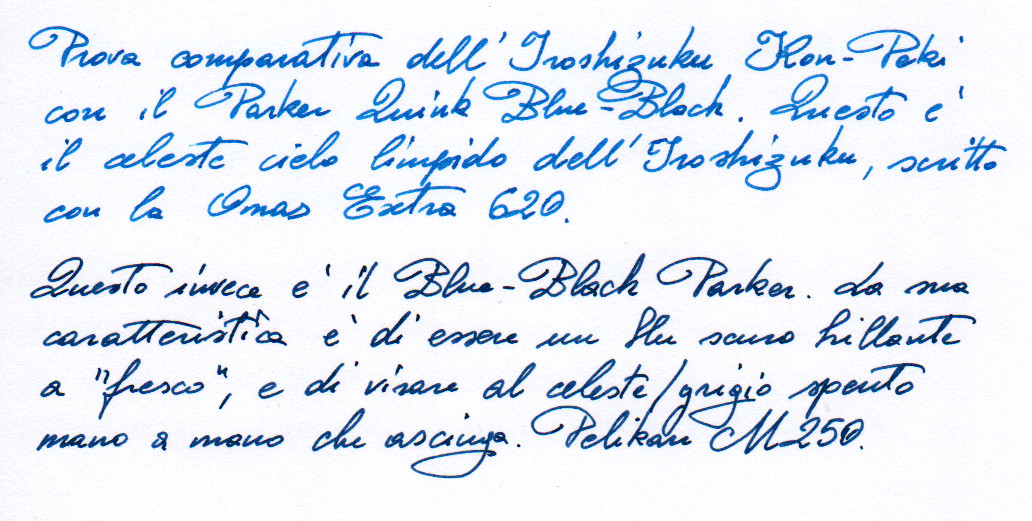 Prova comparativa dell'Iroshizuku Kon-Peki
con il Parker Quink Blue-Black. Questo è
il celeste cielo limpido dell'Iroshizuku, scritto
con la Omas Extra 620.
Questo invece è il Blue-Black Parker. La sua
caratteristica è di essere un blu scuro brillante
a "fresco", e di virare al celeste/grigio spento
mano a mano che asciuga. Pelikan M250.